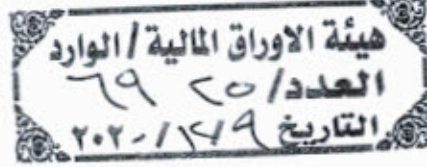 هيئة الاوراق المالية / الوارد
العدد/ ٦٩٢٥
التاريخ ٢٠٢٠/